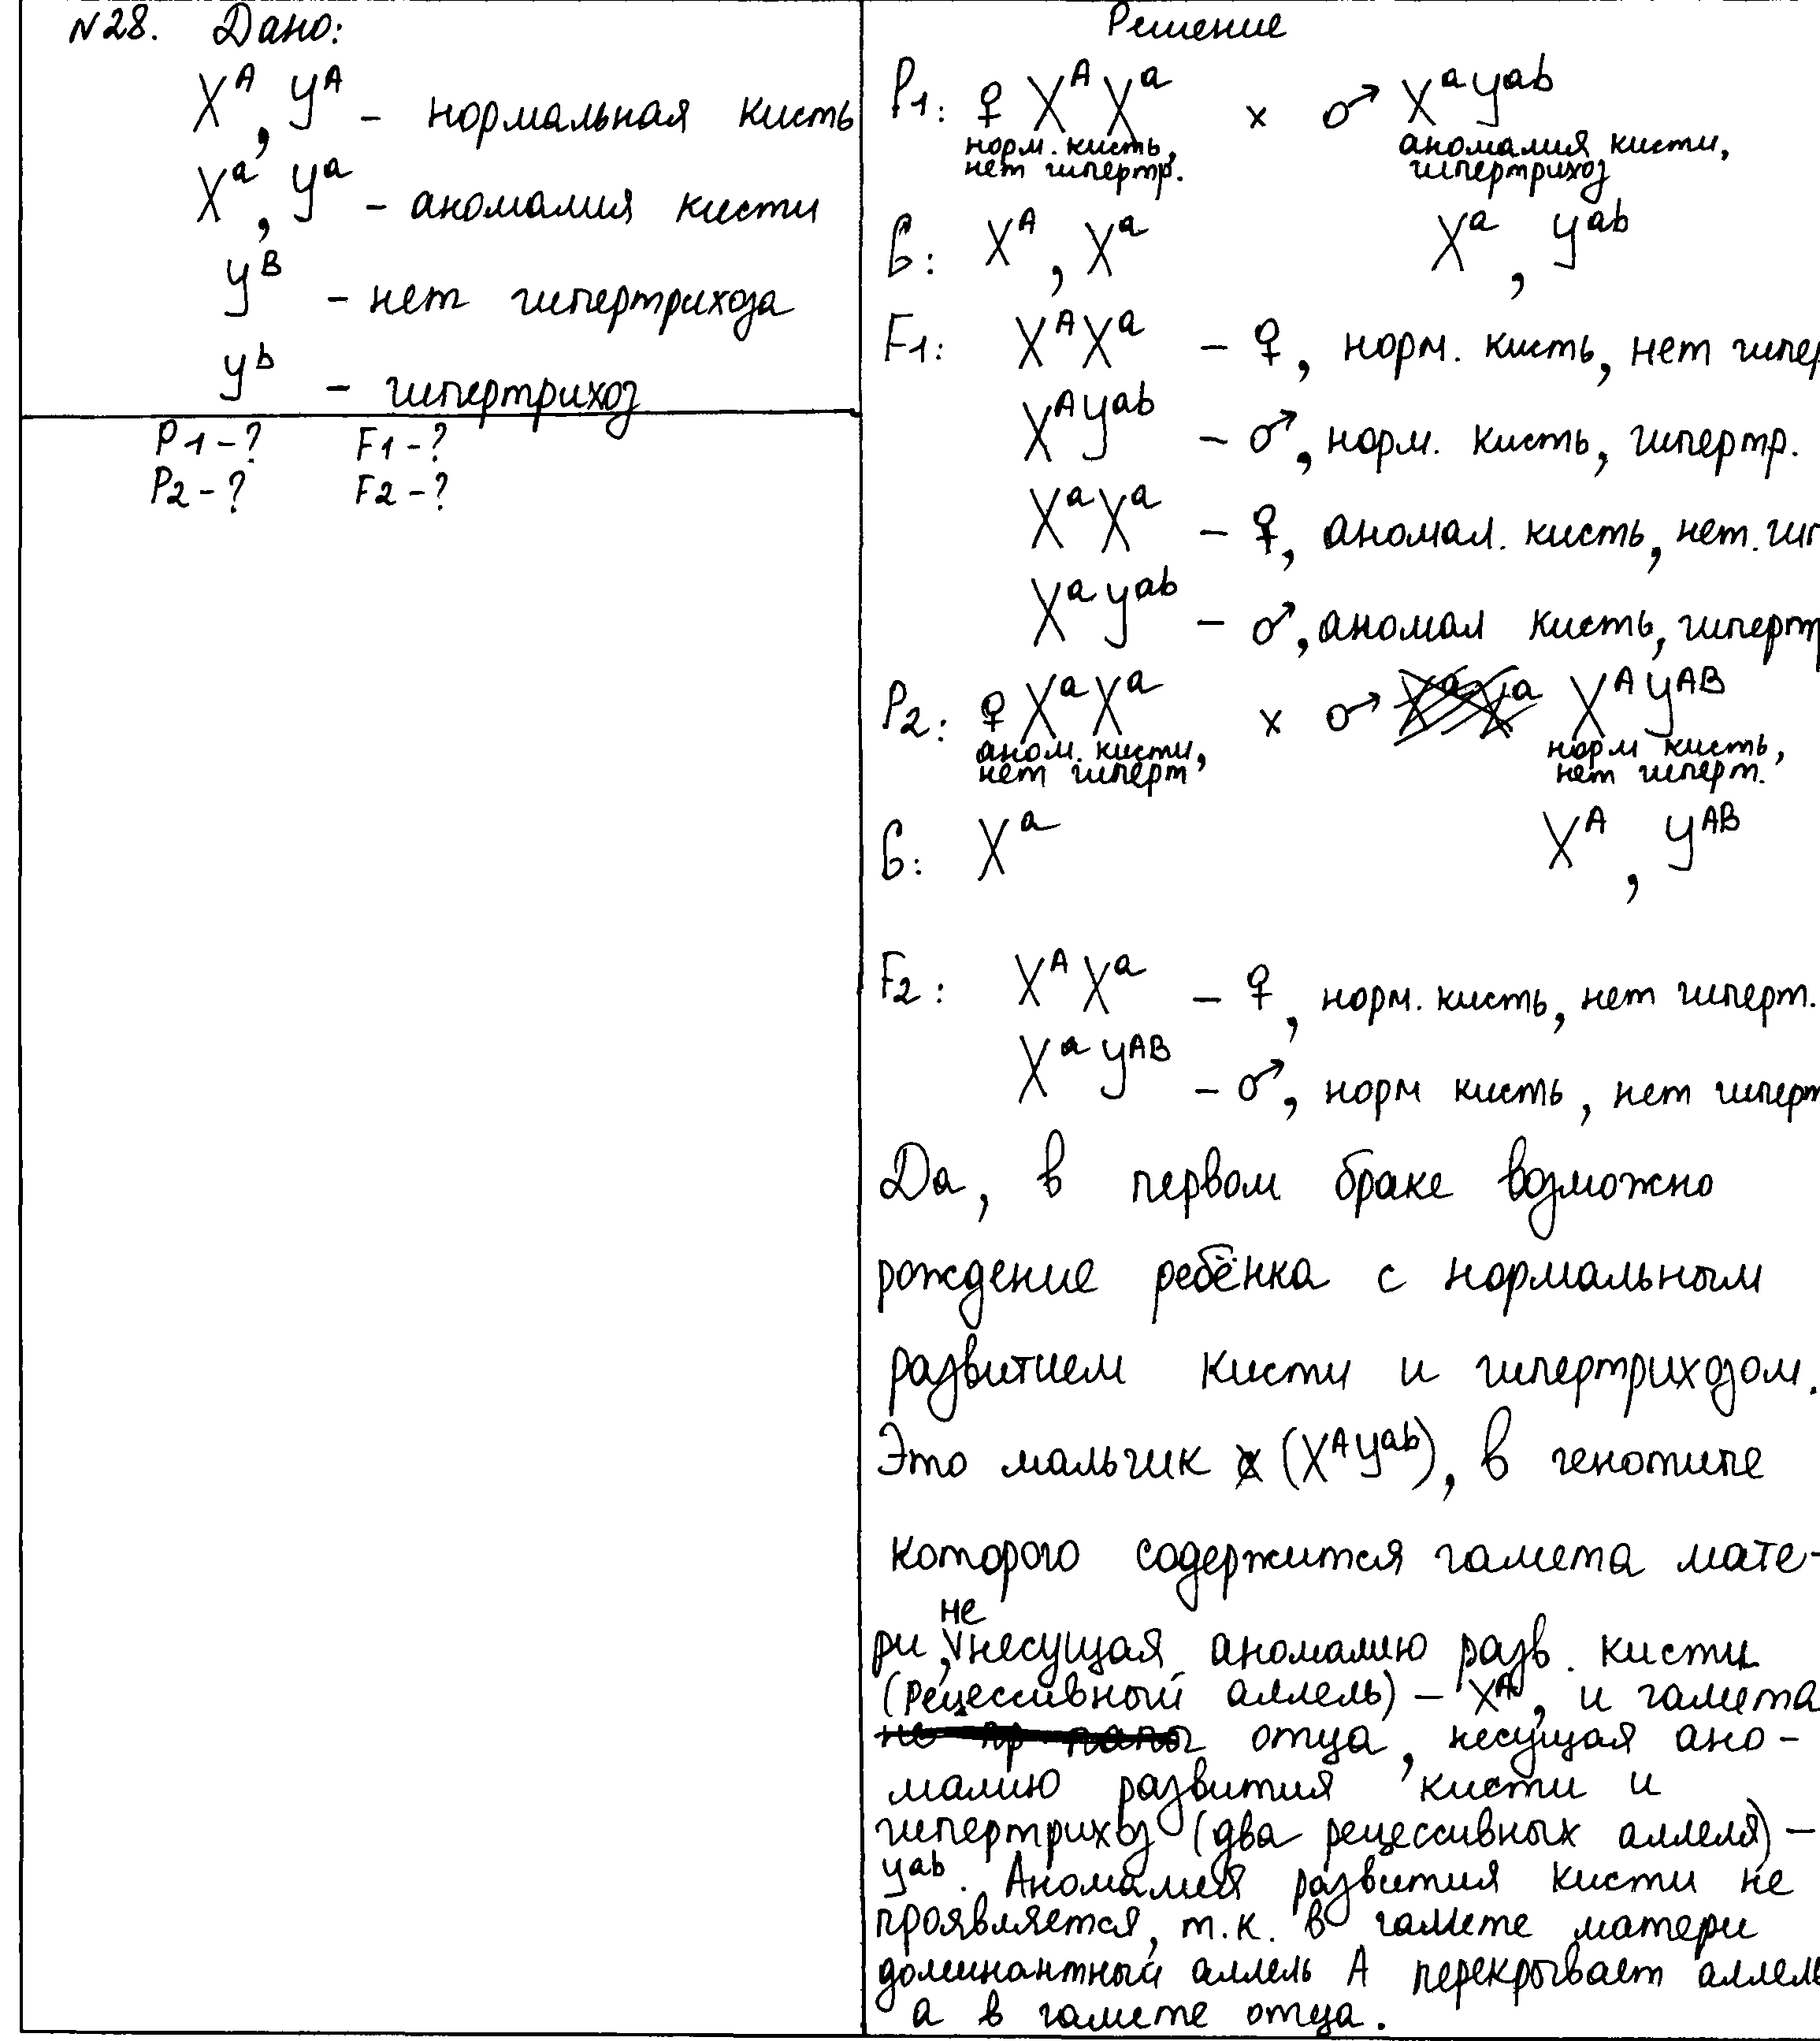 N28. Дано:
X^A, У^A - нормальная кисть
X^a, У^a - аномалия кисти
У^B - нет гипертрихоза
У^b - гипертрихоз
P1-? F1-?
P2-? F2-?
Решение
P1: ♀ X^A X^a × ♂ X^a У^ab
норм. кисть, аномалия кисти,
нет гипертр. гипертрихоз
G: X^A, X^a X^a, У^ab
F1: X^A X^a - ♀, норм. кисть, нет гипер
X^A У^ab - ♂, норм. кисть, гипертр.
X^a X^a - ♀, аномал. кисть, нет. гип
X^a У^ab - ♂, аномал кисть, гипертр
P2: ♀ X^a X^a × ♂ X^A У^AB
аном. кисти, норм кисть,
нет гиперт нет гиперт.
G: X^a X^A, У^AB
F2: X^A X^a - ♀, норм. кисть, нет гиперт.
X^a У^AB - ♂, норм кисть, нет гиперт
Да, в первом браке возможно
рождение ребёнка с нормальным
развитием кисти и гипертрихозом.
Это мальчик (X^A У^ab), в генотипе
которого содержится гамета мате-
не
ри, несущая аномалию разв. кисти
(рецессивный аллель) - X^A, и гамета
отца, несущая ано-
малию развития кисти и
гипертрихоз (два рецессивных аллеля) -
У^ab. Аномалия развития кисти не
проявляется, т.к. в гамете матери
доминантный аллель А перекрывает аллель
а в гамете отца.